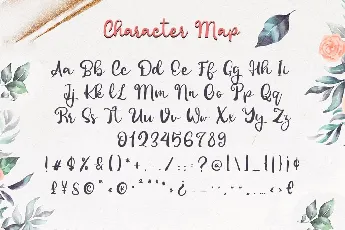 Character Map
Aa Bb Cc Dd Ee Ff Gg Hh Ii
Jj Kk Ll Mm Nn Oo Pp Qq
Rr Ss Tt Uu Vv Ww Xx Yy Zz
0123456789
! # $ % & ( ) * + , . / : ; ? @ [ \ ] _ { | } ¡ ¢
£ ¥ § © « ® ¿ ‹ ›